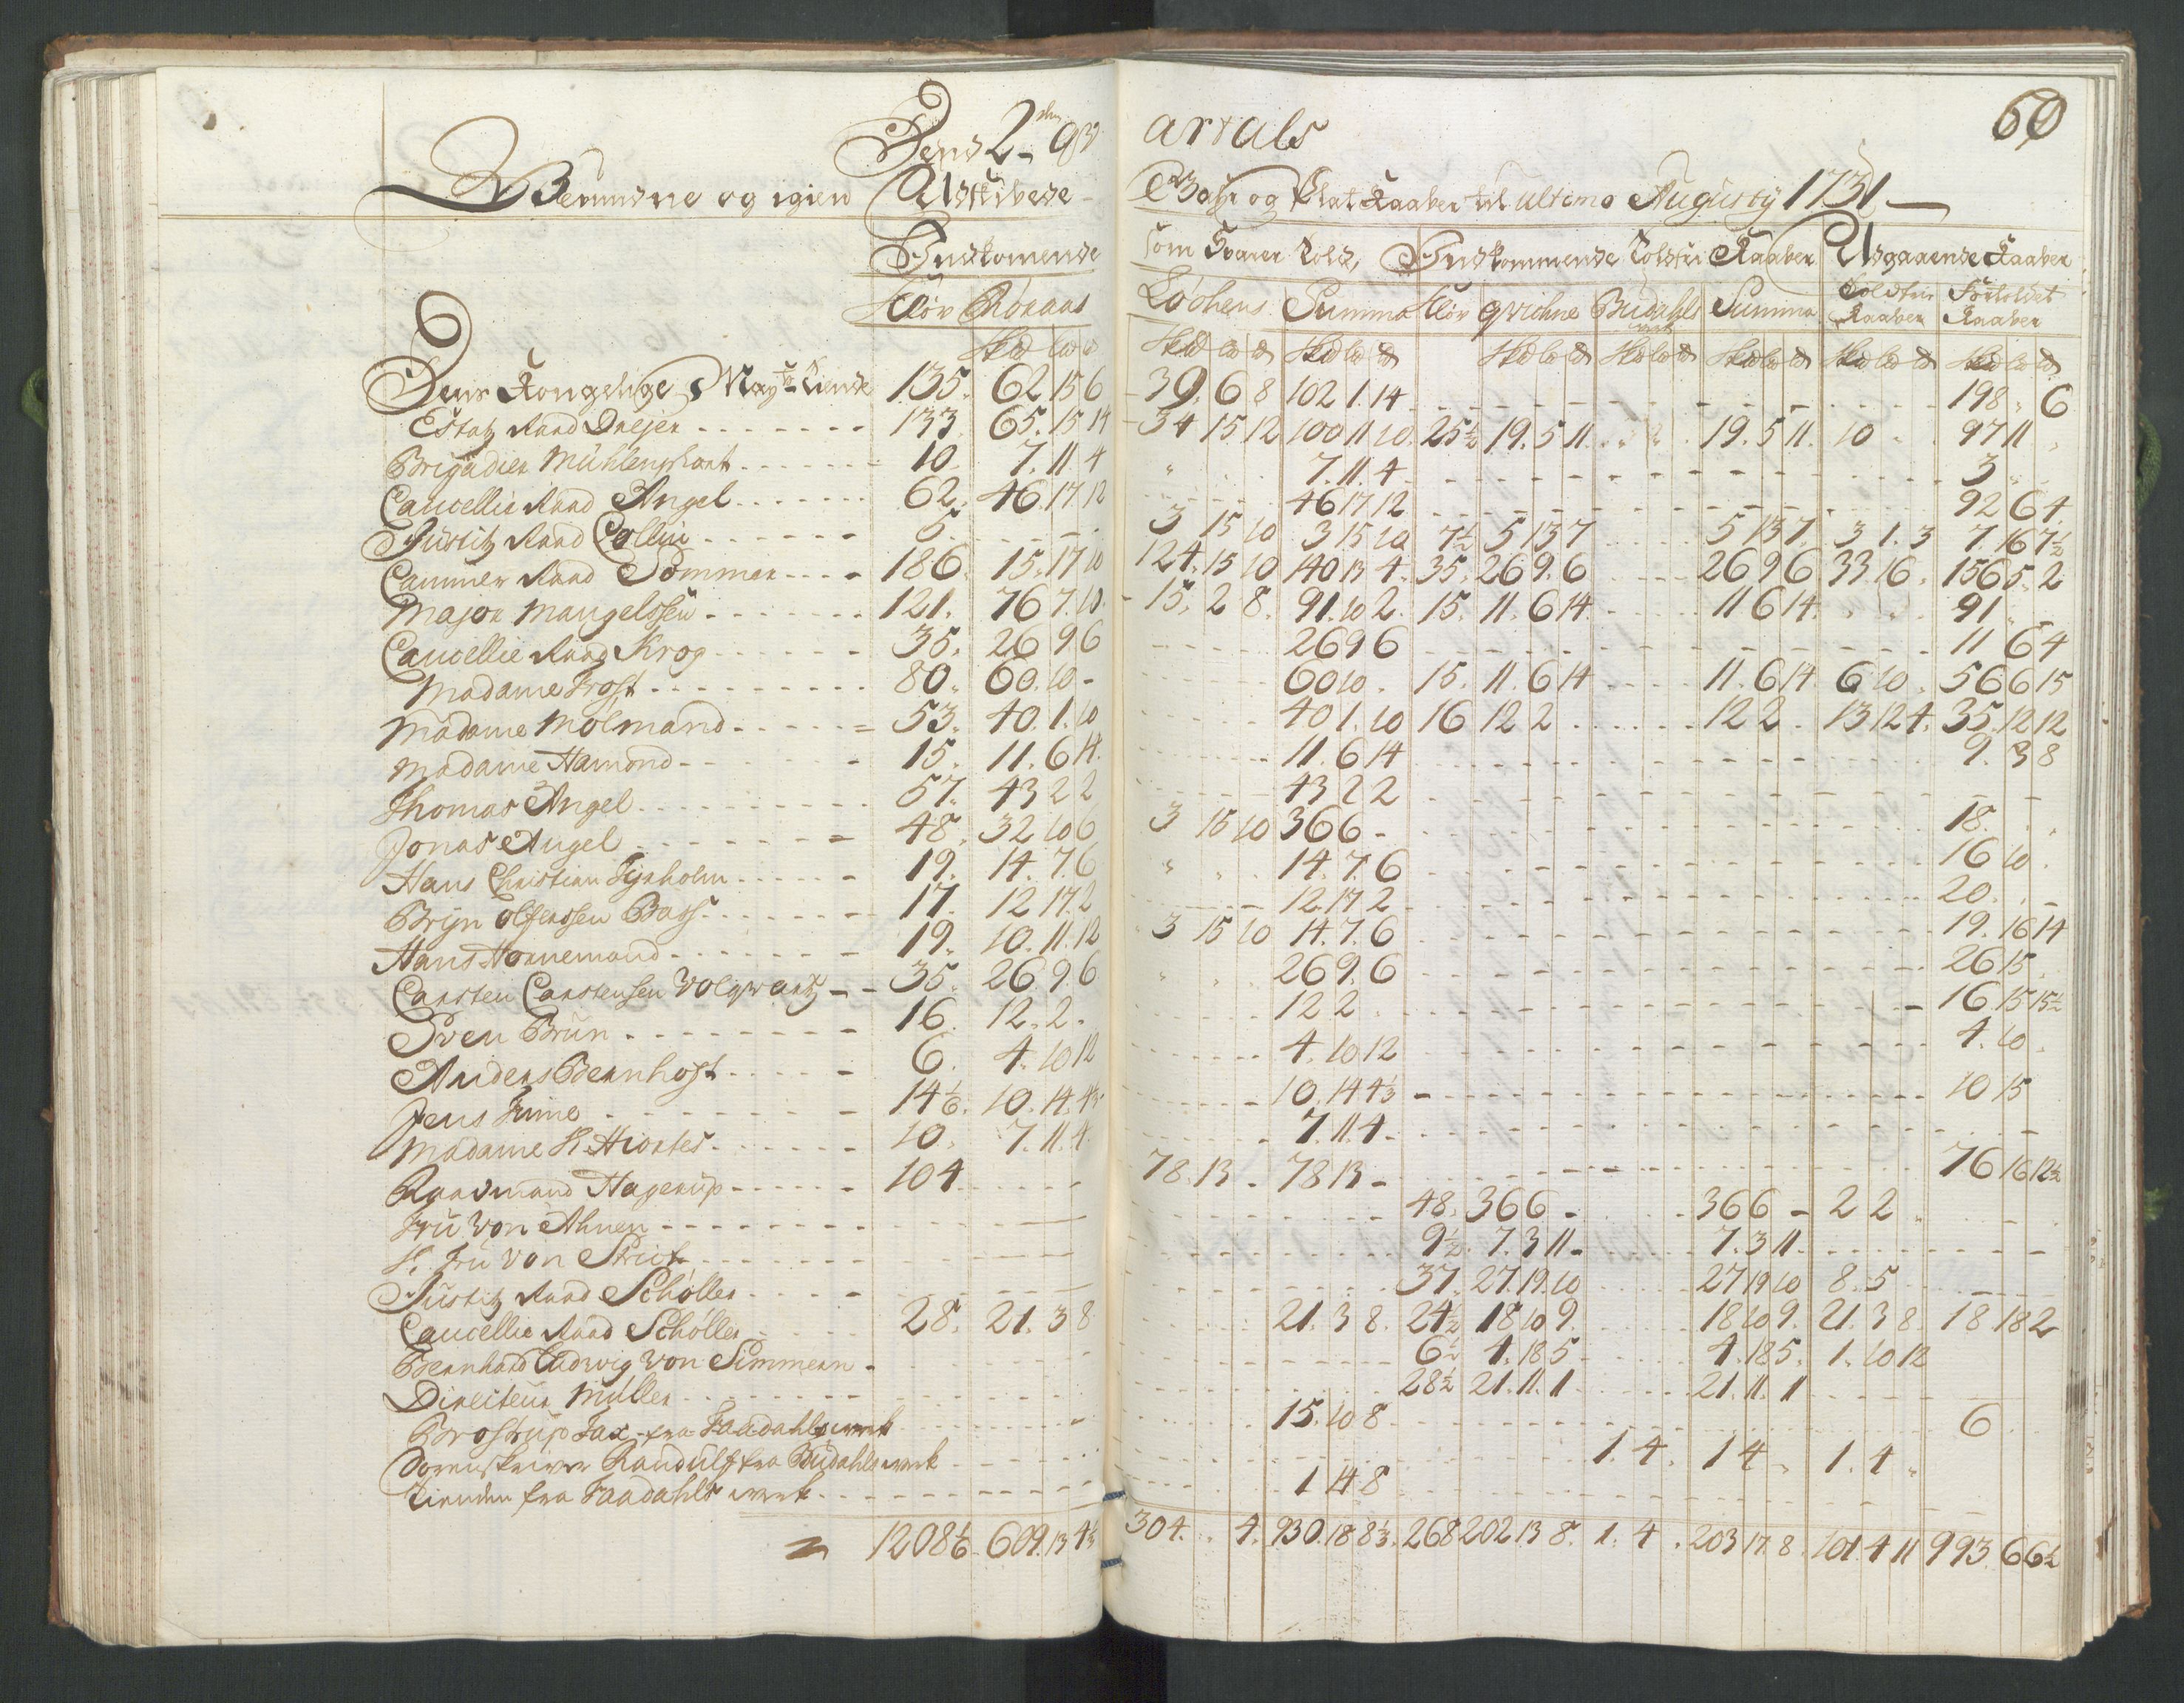 60
Dend 2den Qv artals
og igien Udskibede Gahr og Plat Kaaber til ultimo Augusty 1731
Indkomende som Svarer Told, Indkommende Toldfri Kaaber Udgaaende Kaaber
Kløv Røraas Løchens Summa Kløv qvichne Budahls verk Summa Toldfrie Kaaber Fortoldet Kaaber
Skd Ld d Skd Ld d Skd Ld d Skd Ld d Skd Ld d Skd Ld d Skd Ld d Skd Ld d
Dens Kongelige Mayts Tiende 135. 62 15 6 39. 6 8 102 1. 14 198 " 6
Estatz Raad Dreyer 133 65. 15 14 34 15 12 100 11 10 25½ 19. 5 11 " " 19. 5 11. 10 97 11 "
Brigadier Mühlenphort 10 7. 11. 4 " 7. 11. 4 3 "
Cancellie Raad Angel 62 46. 17 12 46 17 12 92 6 4
Justitz Raad Collin 5 3 15 10 3 15 10 7½ 5 13 7 5 13 7 3 1. 3 7. 16 7½
Cammer Raad Sommer 186. 15. 17 10 124. 15 10 140 13 4. 35. 26 9. 6 26 9 6 33 16. 156 5. 2
Major Mangelssen 121. 76 7. 10 15. 2 8. 91. 10 2. 15. 11. 6 14 11 6 14. 91
Cancellie Raad Krog 35. 26 9 6 26 9 6 11 6 4
Madame Frost 80. 60. 10 - 60 10. 15. 11. 6 14 11. 6 14 6 10. 56 6 15
Madame Mölmand 53. 40. 1. 10 40 1. 10 16 12 2 12 2. 13 12 4. 35. 12 12
Madame Hamond 15. 11. 6 14. 11. 6 14 9. 3 8
Thomas Angel 57. 43 2 2 43 2 2
Jonas Angel 48. 32 10 6 3 15 10 36 6 - 18.
Hans Christian Tyrholm 19. 14. 7. 6 " 14. 7. 6 16 10.
Bryn Olferssen Bass 17. 12 17. 2 12. 17. 2 20.
Hans Hornemand 19. 10. 11. 12 3 15 10 14. 7. 6 19. 16 14
Carsten Carstensen Volqvartz 35. 26. 9. 6 " 26 9. 6 26 15.
Sven Brün 16. 12. 2. 12 2 16 15 15½
Anders Bernhoft 6. 4. 10 12 4. 10 12 4. 10.
Jens Hime 14⅙. 10. 14. 4⅓ 10. 14 4⅓ 10 15
Madame Sl. Hiortes 10. 7. 11. 4 7. 11. 4
Raadmand Hagerup 104 78. 13 - 78 13 - 76 16 12½
Fru von Ahnen 48. 36 6 - 36 6 - 2 2 "
Sl. Fru von 9½. 7. 3 11 - 7. 3 11.
Justitz Raad Schøller 37. 27. 19. 10 27 19 10 8. 5
Cancellie Raad Schøller 28. 21. 3 8 21. 3 8. 24½ 18 10 9. 18 10 9. 21. 3 8. 18 18 2
Bernhard Ludvig von Simmern 6½ 4. 18 5 4. 18 5. 1. 10 12
Directeur Müller 28½ 21. 11. 1 21. 11. 1
Brostrup Fax fra Faadahls werk 15. 10 8 6
Randulf fra Budahls werk 1. 4. 1 4 " 1. 4 "
Tienden fra Faadahls werk 1 14 8
1208⅙. 609. 13 4⅓ 304. " 4. 930. 18 8⅓. 268 202 13 8. 1. 4. 203 17. 8. 101. 4 11 993. 6 6½